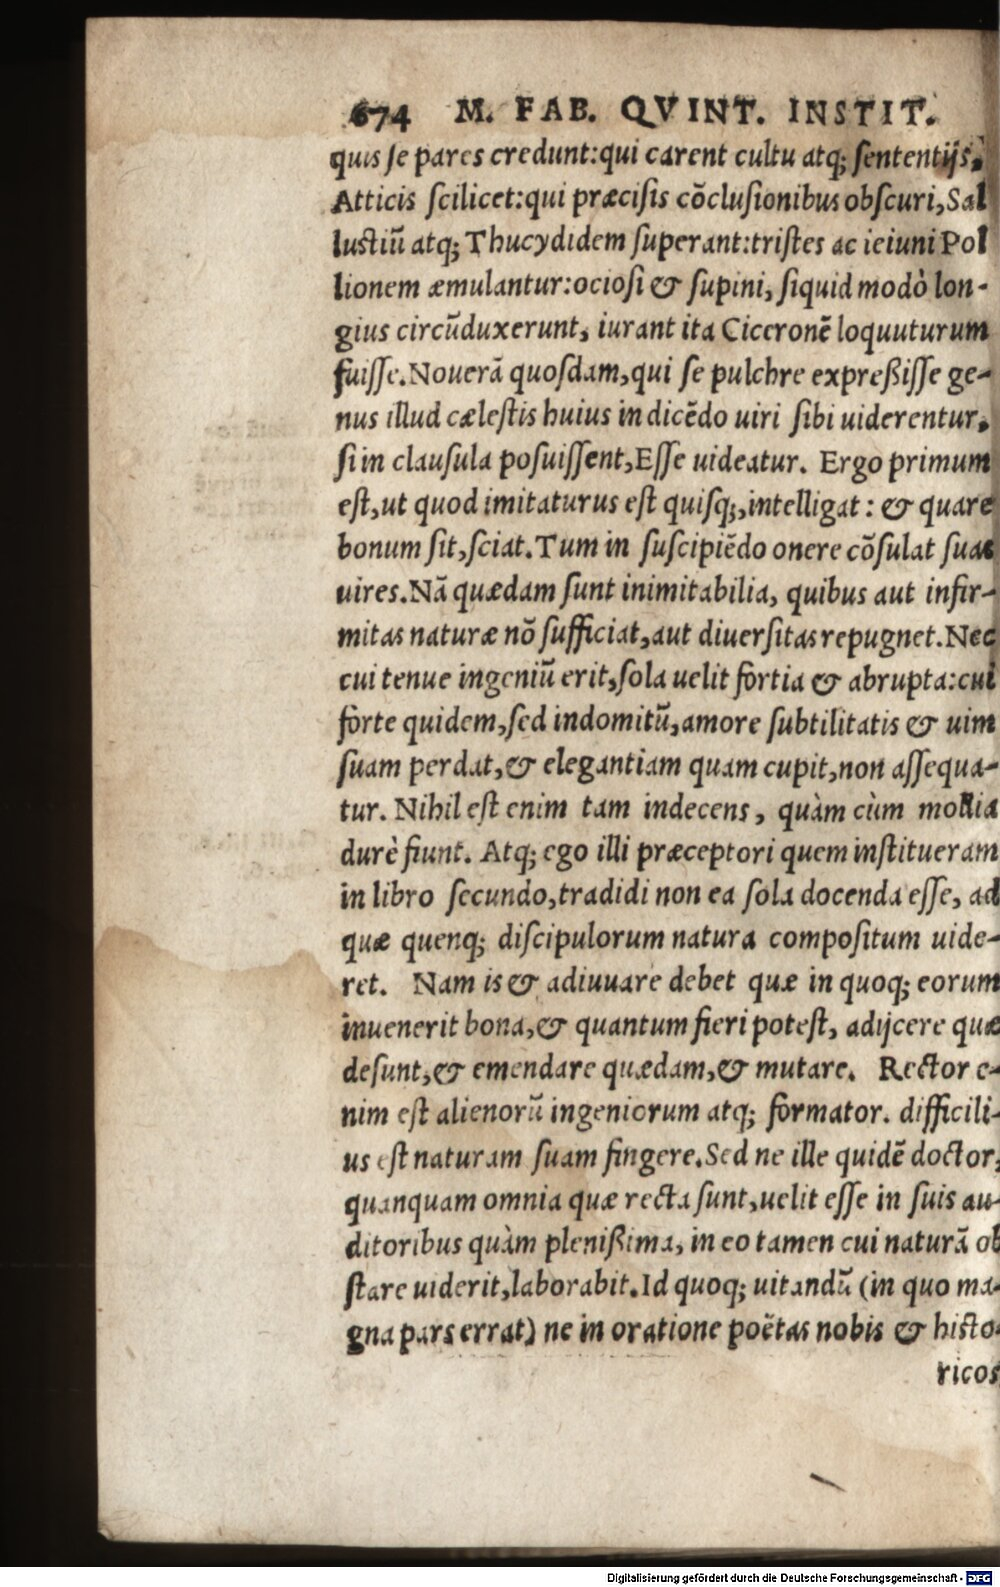 674 M. FAB. QVINT. INSTIT.
quis ſe pares credunt:qui carent cultu atq; ſententijs.
Atticis ſcilicet:qui præciſis cõcluſionibus obſcuri,Sal
luſtiũ atq; Thucydidem ſuperant:triſtes ac ieiuni Pol
lionem æmulantur:ocioſi & ſupini, ſiquid modò lon-
gius circũduxerunt, iurant ita Ciceronẽ loquuturum
fuiſſe.Nouerã quoſdam,qui ſe pulchre expreßiſſe ge-
nus illud cæleſtis huius in dicẽdo uiri ſibi uiderentur,
ſi in clauſula poſuiſſent,Eſſe uideatur. Ergo primum
eſt,ut quod imitaturus eſt quiſq;,intelligat : & quare
bonum ſit,ſciat.Tum in ſuſcipiẽdo onere cõſulat ſuas
uires.Nã quædam ſunt inimitabilia, quibus aut infir-
mitas naturæ nõ ſufficiat,aut diuerſitas repugnet.Nec
cui tenue ingeniũ erit,ſola uelit fortia & abrupta:cui
forte quidem,ſed indomitũ,amore ſubtilitatis & uim
ſuam perdat,& elegantiam quam cupit,non aſſequa-
tur. Nihil eſt enim tam indecens, quàm cùm mollia
durè fiunt. Atq; ego illi præceptori quem inſtitueram
in libro ſecundo,tradidi non ea ſola docenda eſſe, ad
quæ quenq; diſcipulorum natura compoſitum uide-
ret. Nam is & adiuuare debet quæ in quoq; eorum
inuenerit bona,& quantum fieri poteſt, adijcere quæ
deſunt,& emendare quædam,& mutare. Rector e-
nim eſt alienorũ ingeniorum atq; formator. difficili-
us eſt naturam ſuam fingere.Sed ne ille quidẽ doctor,
quanquam omnia quæ recta ſunt,uelit eſſe in ſuis au-
ditoribus quàm plenißima, in eo tamen cui naturã ob
ſtare uiderit,laborabit.Id quoq; uitandũ (in quo ma-
gna pars errat) ne in oratione poëtas nobis & hiſto-
ricos
Digitalisierung gefördert durch die Deutsche Forschungsgemeinschaft - DFG